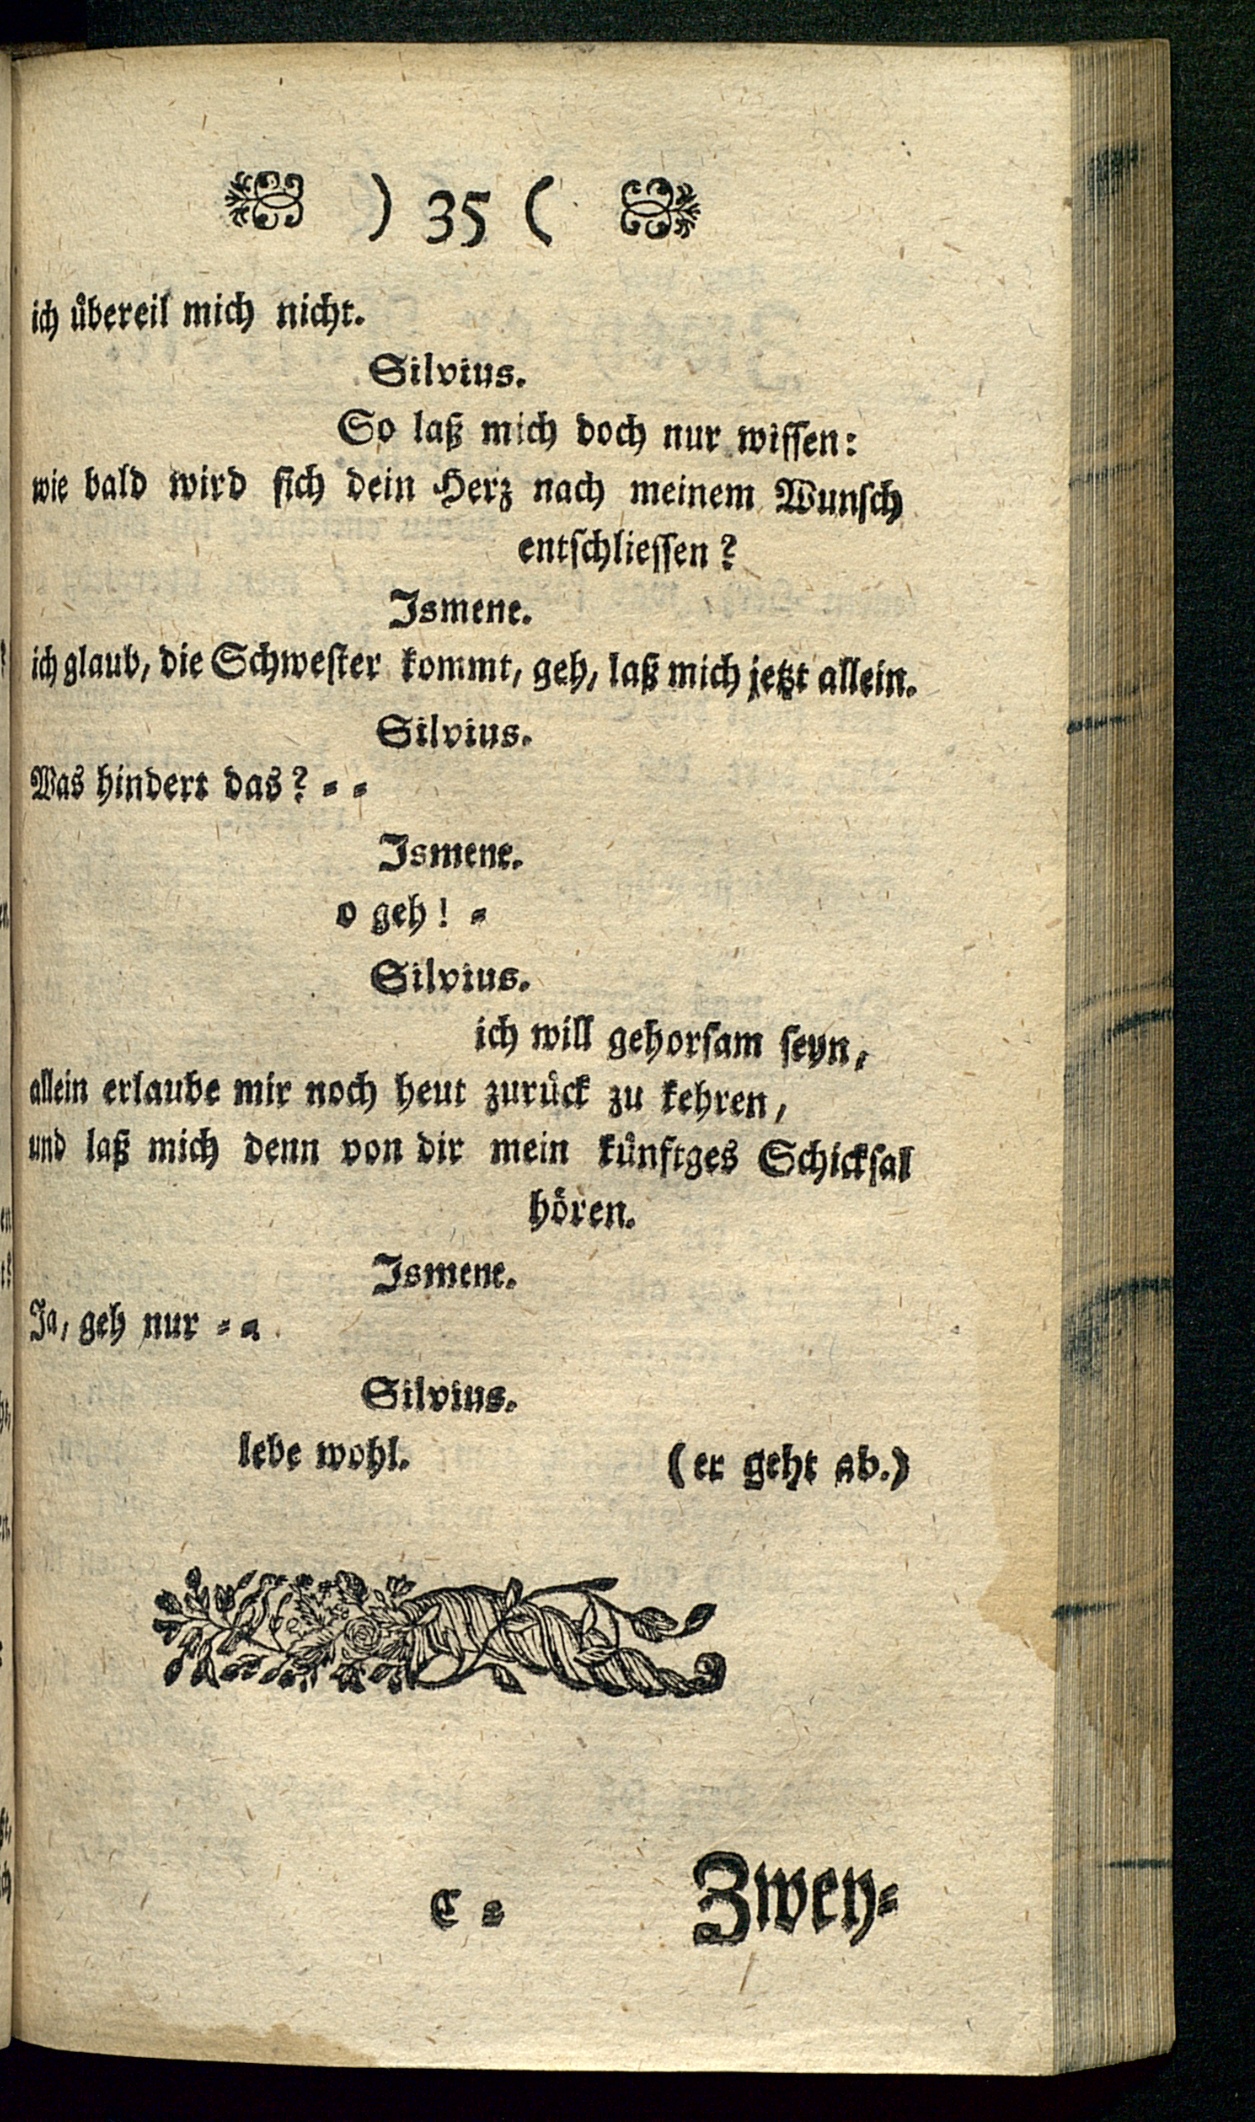 ) 35 (
ich übereil mich nicht.
Silvius.
So laß mich doch nur wissen:
wie bald wird sich dein Herz nach meinem Wunsch
entschliessen?
Ismene.
ich glaub, die Schwester kommt, geh, laß mich jetzt allein.
Silvius.
Was hindert das? = =
Ismene.
o geh! =
Silvius.
ich will gehorsam seyn,
allein erlaube mir noch heut zurück zu kehren,
und laß mich denn von dir mein künftges Schicksal
hören.
Ismene.
Ja, geh nur = =
Silvius.
lebe wohl. (er geht ab.)
C 2 Zwey=